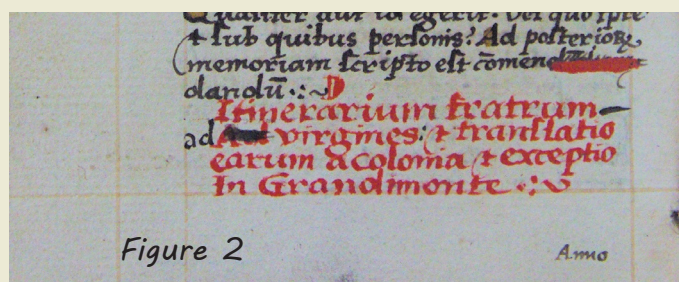 Qualiter aut id egerit: vel quo ipse
& sub quibus personis? Ad posterioꝝ
memoriam scripto est cōmen
dandū .:~
Itinerarium fratrum—
ad virgines: & translatio
earum a colonia & exceptio
In Grandimonte .:~
Figure 2
Anno